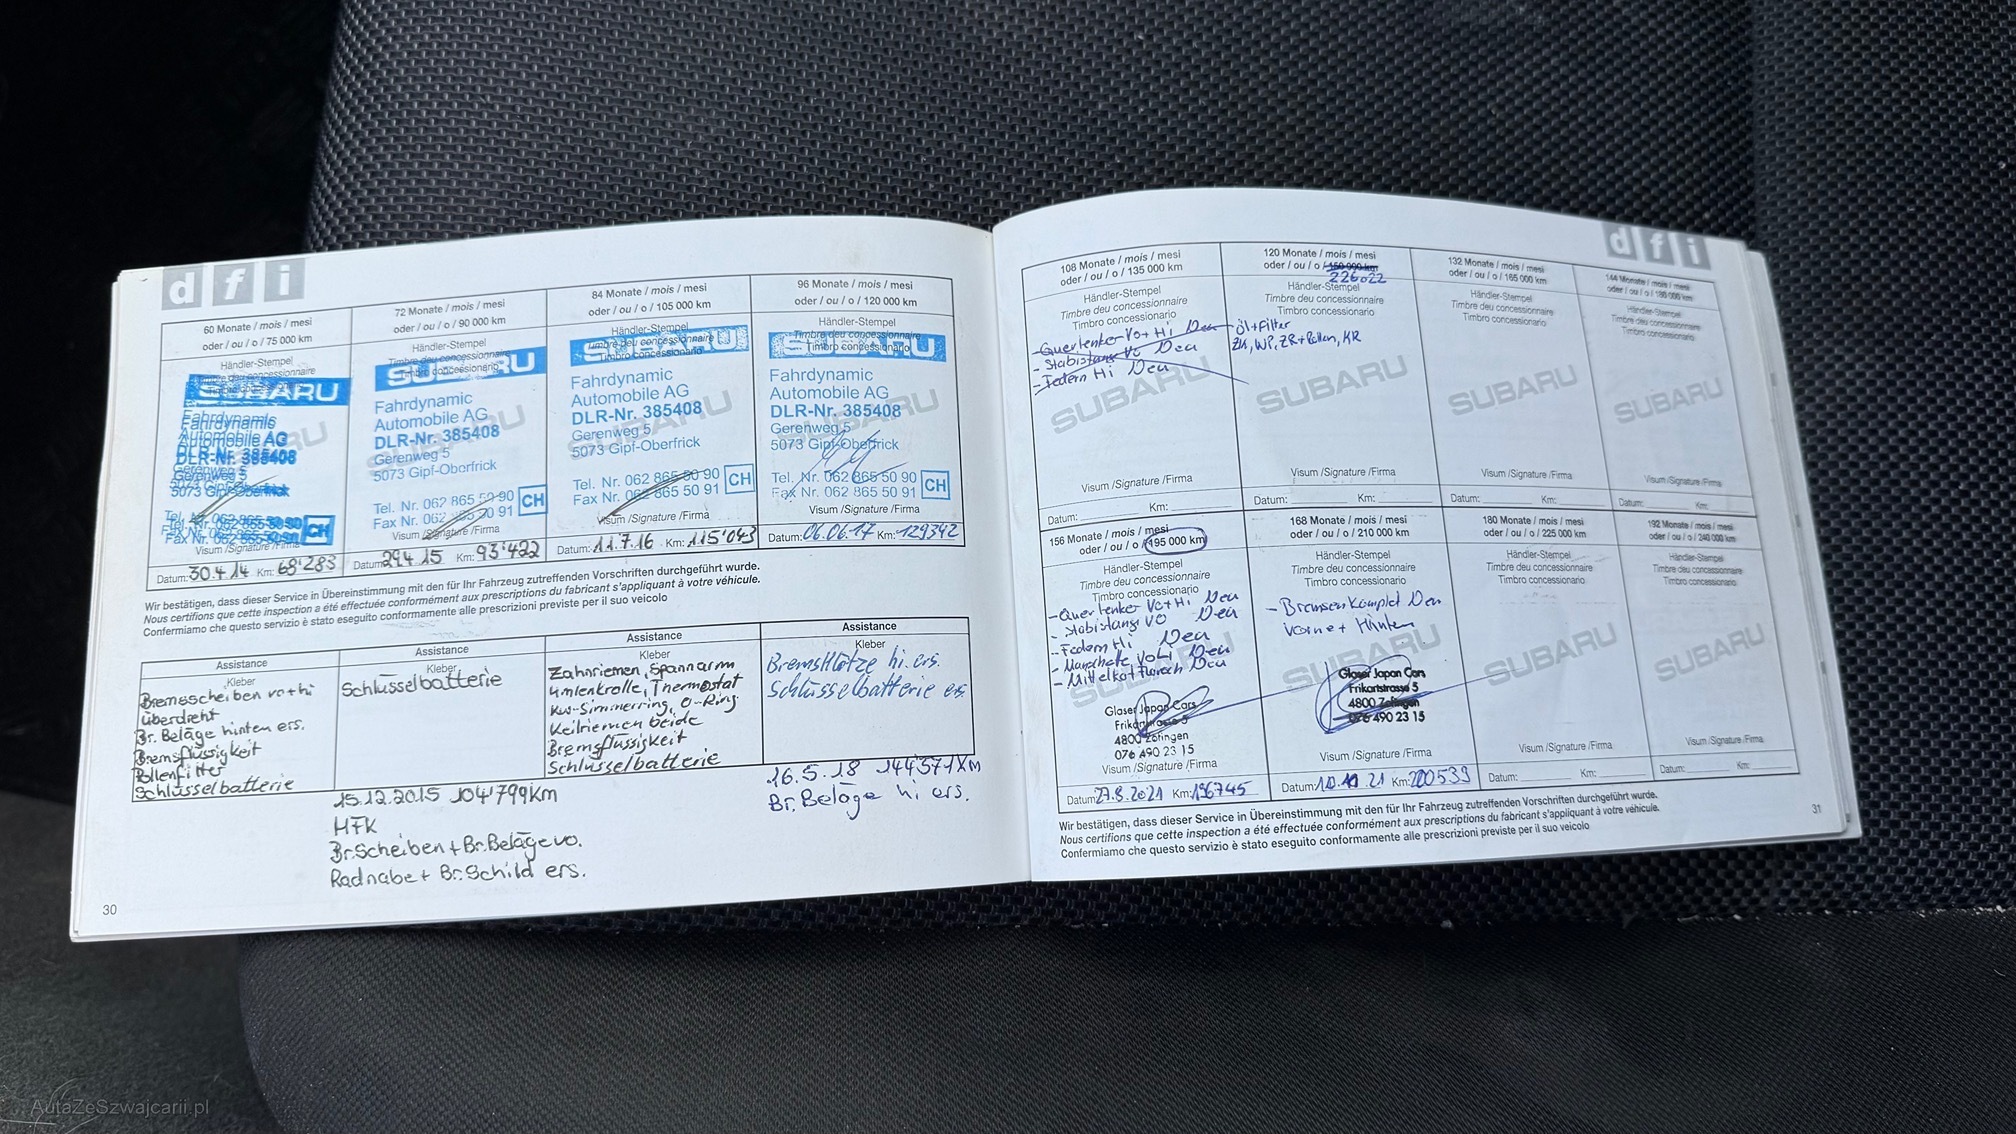 dfi
60 Monate / mois / mesi
oder / ou / o / 75 000 km
Händler-Stempel
Timbre deu concessionnaire
Timbro concessionario
SUBARU
Fahrdynamic
Automobile AG
DLR-Nr. 385408
Gerenweg 5
5073 Gipf-Oberfrick
Tel. Nr. 062 865 50 90
Fax Nr. 062 865 50 91
CH
Visum /Signature /Firma
Datum: 30.4.14 Km: 68'283
72 Monate / mois / mesi
oder / ou / o / 90 000 km
Händler-Stempel
Timbre deu concessionnaire
Timbro concessionario
SUBARU
Fahrdynamic
Automobile AG
DLR-Nr. 385408
Gerenweg 5
5073 Gipf-Oberfrick
Tel. Nr. 062 865 50 90
Fax Nr. 062 865 50 91
CH
Visum /Signature /Firma
Datum: 29.4.15 Km: 93'422
84 Monate / mois / mesi
oder / ou / o / 105 000 km
Händler-Stempel
Timbre deu concessionnaire
Timbro concessionario
SUBARU
Fahrdynamic
Automobile AG
DLR-Nr. 385408
Gerenweg 5
5073 Gipf-Oberfrick
Tel. Nr. 062 865 50 90
Fax Nr. 062 865 50 91
CH
Visum /Signature /Firma
Datum: 11.7.16 Km: 115'043
96 Monate / mois / mesi
oder / ou / o / 120 000 km
Händler-Stempel
Timbre deu concessionnaire
Timbro concessionario
SUBARU
Fahrdynamic
Automobile AG
DLR-Nr. 385408
Gerenweg 5
5073 Gipf-Oberfrick
Tel. Nr. 062 865 50 90
Fax Nr. 062 865 50 91
CH
Visum /Signature /Firma
Datum: 06.06.17 Km: 129342
Wir bestätigen, dass dieser Service in Übereinstimmung mit den für Ihr Fahrzeug zutreffenden Vorschriften durchgeführt wurde.
Nous certifions que cette inspection a été effectuée conformément aux prescriptions du fabricant s'appliquant à votre véhicule.
Confermiamo che questo servizio è stato eseguito conformamente alle prescrizioni previste per il suo veicolo
Assistance
Kleber
Bremsscheiben vo+hi
überdreht
Br. Beläge hinten ers.
Bremsflüssigkeit
Pollenfilter
Schlüsselbatterie
Assistance
Kleber
Schlüsselbatterie
Assistance
Kleber
Zahnriemen, Spannarm
Umlenkrolle, Thermostat
KW-Simmerring, O-Ring
Keilriemen beide
Bremsflüssigkeit
Schlüsselbatterie
Assistance
Kleber
Bremsklötze hi. ers.
Schlüsselbatterie ers
15.12.2015 104'799KM
MFK
Br.Scheiben + Br.Beläge vo.
Radnabe + Br.Schild ers.
16.5.18 144'571KM
Br. Beläge hi ers.
30
dfi
108 Monate / mois / mesi
oder / ou / o / 135 000 km
Händler-Stempel
Timbre deu concessionnaire
Timbro concessionario
- Querlenker Vo+Hi Neu
- Stabistange Vo Neu
- Federn Hi Neu
SUBARU
Visum /Signature /Firma
Datum: Km:
120 Monate / mois / mesi
oder / ou / o / 150 000 km
226022
Händler-Stempel
Timbre deu concessionnaire
Timbro concessionario
Öl+Filter
ZK, WP, ZR+Rollen, KR
SUBARU
Visum /Signature /Firma
Datum: Km:
132 Monate / mois / mesi
oder / ou / o / 165 000 km
Händler-Stempel
Timbre deu concessionnaire
Timbro concessionario
SUBARU
Visum /Signature /Firma
Datum: Km:
144 Monate / mois / mesi
oder / ou / o / 180 000 km
Händler-Stempel
Timbre deu concessionnaire
Timbro concessionario
SUBARU
Visum /Signature /Firma
Datum: Km:
156 Monate / mois / mesi
oder / ou / o / 195 000 km
Händler-Stempel
Timbre deu concessionnaire
Timbro concessionario
- Querlenker Vo+Hi Neu
- Stabistange VO Neu
- Federn Hi Neu
- Manschete VoLi Neu
Neu
SUBARU
Glaser Japan Cars
Frikartstrasse 5
4800 Zofingen
076 490 23 15
Visum /Signature /Firma
Datum: 27.8.2021 Km: 196745
168 Monate / mois / mesi
oder / ou / o / 210 000 km
Händler-Stempel
Timbre deu concessionnaire
Timbro concessionario
- Bremsen Komplet Neu
Vorne + Hinten
SUBARU
Glaser Japan Cars
Frikartstrasse 5
4800 Zofingen
076 490 23 15
Visum /Signature /Firma
Km: 200539
180 Monate / mois / mesi
oder / ou / o / 225 000 km
Händler-Stempel
Timbre deu concessionnaire
Timbro concessionario
SUBARU
Visum /Signature /Firma
Datum: Km:
192 Monate / mois / mesi
oder / ou / o / 240 000 km
Händler-Stempel
Timbre deu concessionnaire
Timbro concessionario
SUBARU
Visum /Signature /Firma
Datum: Km:
Wir bestätigen, dass dieser Service in Übereinstimmung mit den für Ihr Fahrzeug zutreffenden Vorschriften durchgeführt wurde.
Nous certifions que cette inspection a été effectuée conformément aux prescriptions du fabricant s'appliquant à votre véhicule.
Confermiamo che questo servizio è stato eseguito conformamente alle prescrizioni previste per il suo veicolo
31
AutaZeSzwajcarii.pl